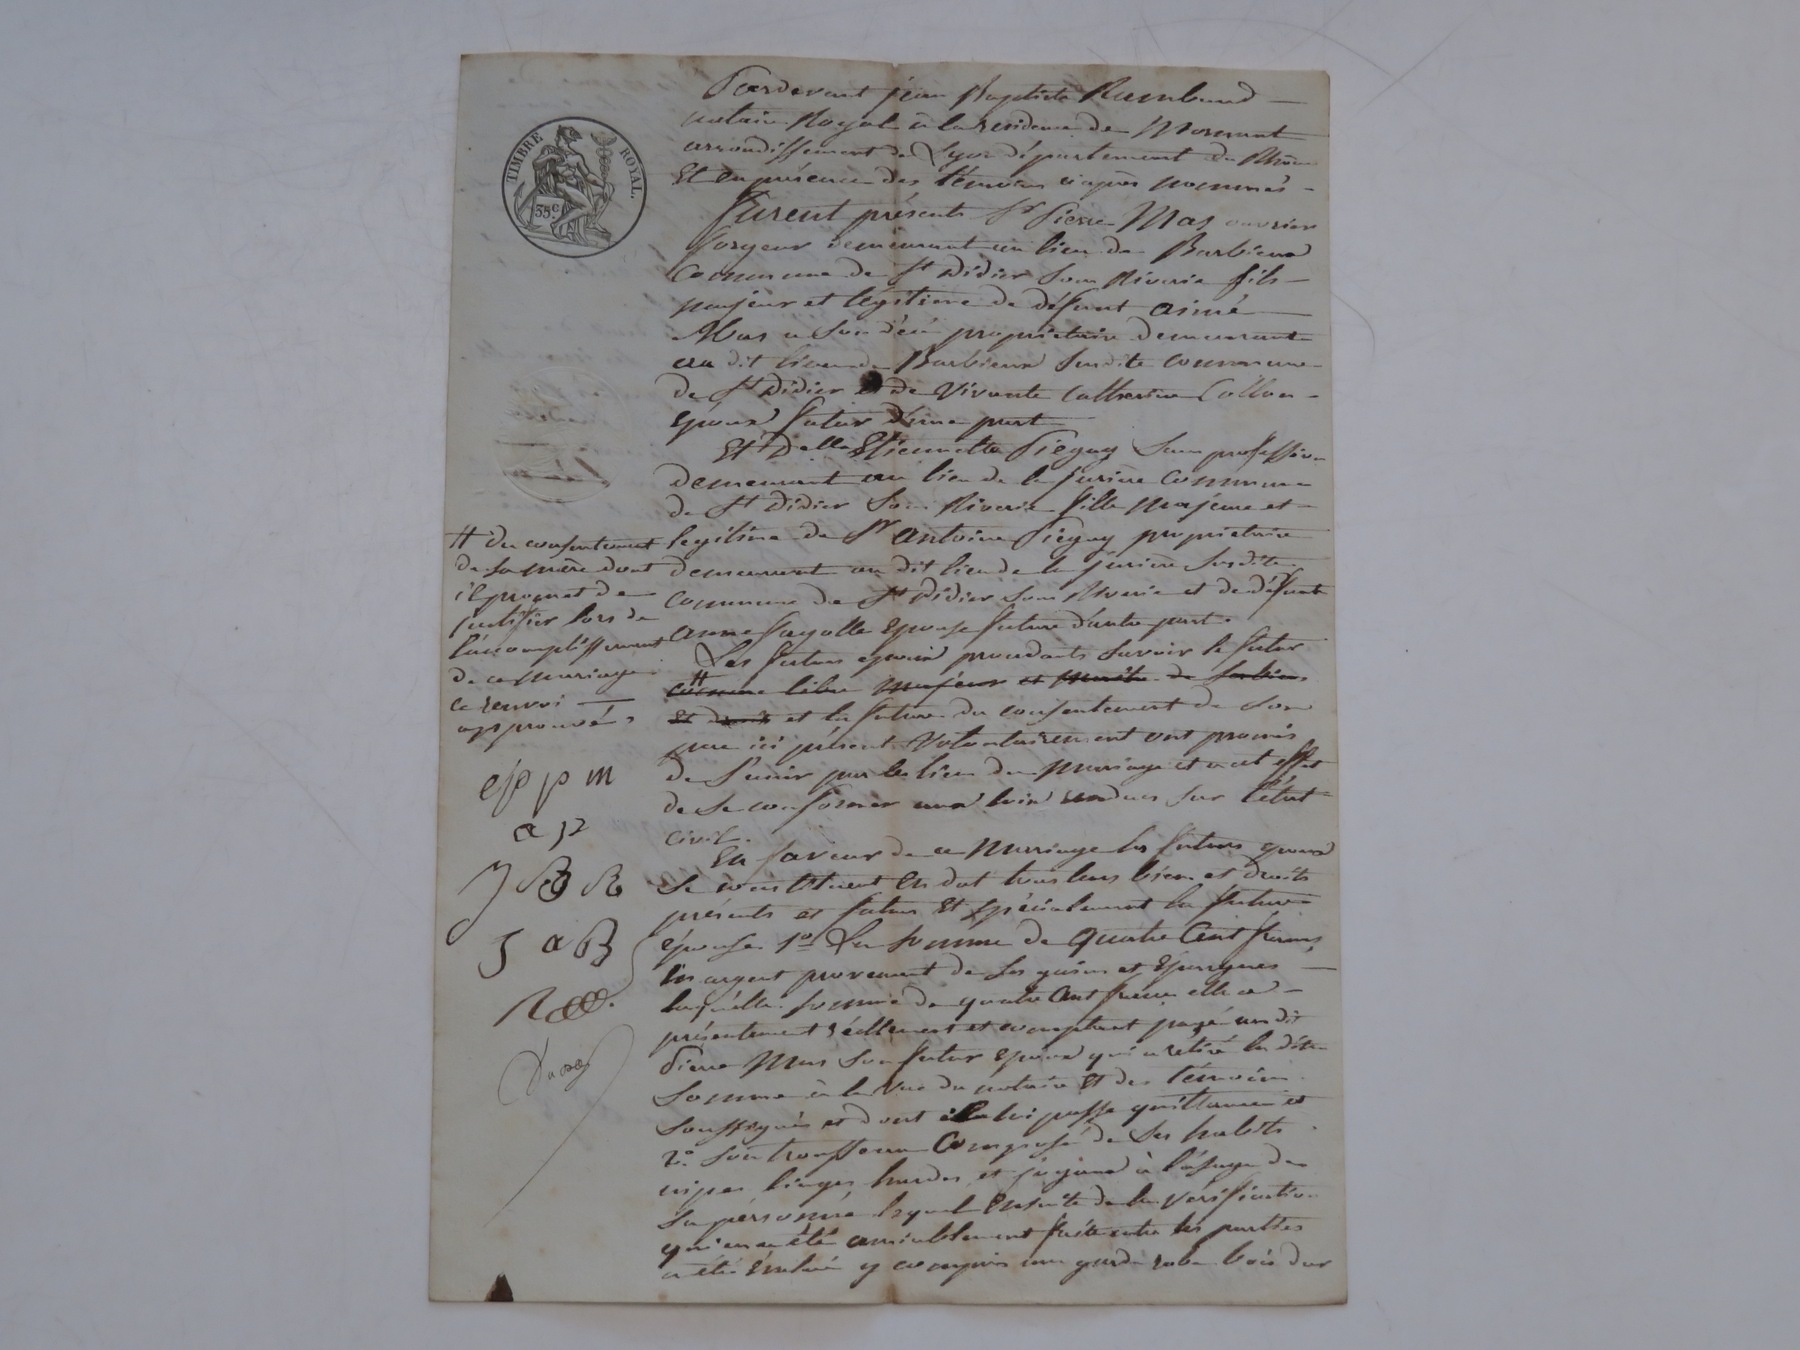 TIMBRE ROYAL.
35c
Pardevant jean Baptiste Rambaud
notaire Royal à la residence de Mornant
arrondissement de Lyon département du Rhône
Et en présence des témoins ciaprès nommés
Furent présents Sr Pierre Mas ouvrier
forgeur demeurant au lieu de Barbieux
Commune de St Didier Sous Riverie fils
majeur et légitime de défunt aimé
Mas a Son décè propriétaire demeurant
au dit lieu de Barbieux Susdite commune
de St Didier et de Vivante Catherine
époux futur d'une part
Et Delle Etiennette Piegay Sans proffession
demeurant au lieu de la
de St Didier Sous Riverie fille Majeure et
legitime de Sr antoine Piegay propriétaire
demeurant au dit lieu de la Susdite
commune de St Didier Sous Riverie et de défunte
anne fayolle Epouse future d'autre part.
Les futurs epoux procédants Savoir le futur
# comme libre Majeur et maître de Ses biens
Et droits et la future du consentement de Son
pere ici présent Volontairement ont promis
de S'unir par les liens du Mariage et a cet effet
de Se conformer aux loix rendues Sur l'état
civil.
En faveur de ce Mariage les futurs epoux
Se constituent En dot tous leurs biens et droits
présents et futurs Et Spécialement la future
épouse 1o La Somme de quatre Cent francs
En argent provenant de Ses gains et Epargnes
laquelle Somme de quatre Cent francs elle a
présentement réellement et comptant payé au dit
Pierre Mas Son futur Epoux qui a retiré la dite
Somme à la Vue du notaire Et des témoins
Soussignés et dont il lui passe quittance et
2o Son trousseau Composé de Ses habits
nipes linges hardes et joyaux à l'usage de
Sa personne lequel Ensuite de la Vérification
qui en a été amiablement faite entre les parties
a été Evalué y compris une garde robe bois dur
# du consentement
de Sa mère dont
il promet de
justifier lors de
l'accomplissement
de ce mariage
ce renvoi
approuvé
ep p m
a p